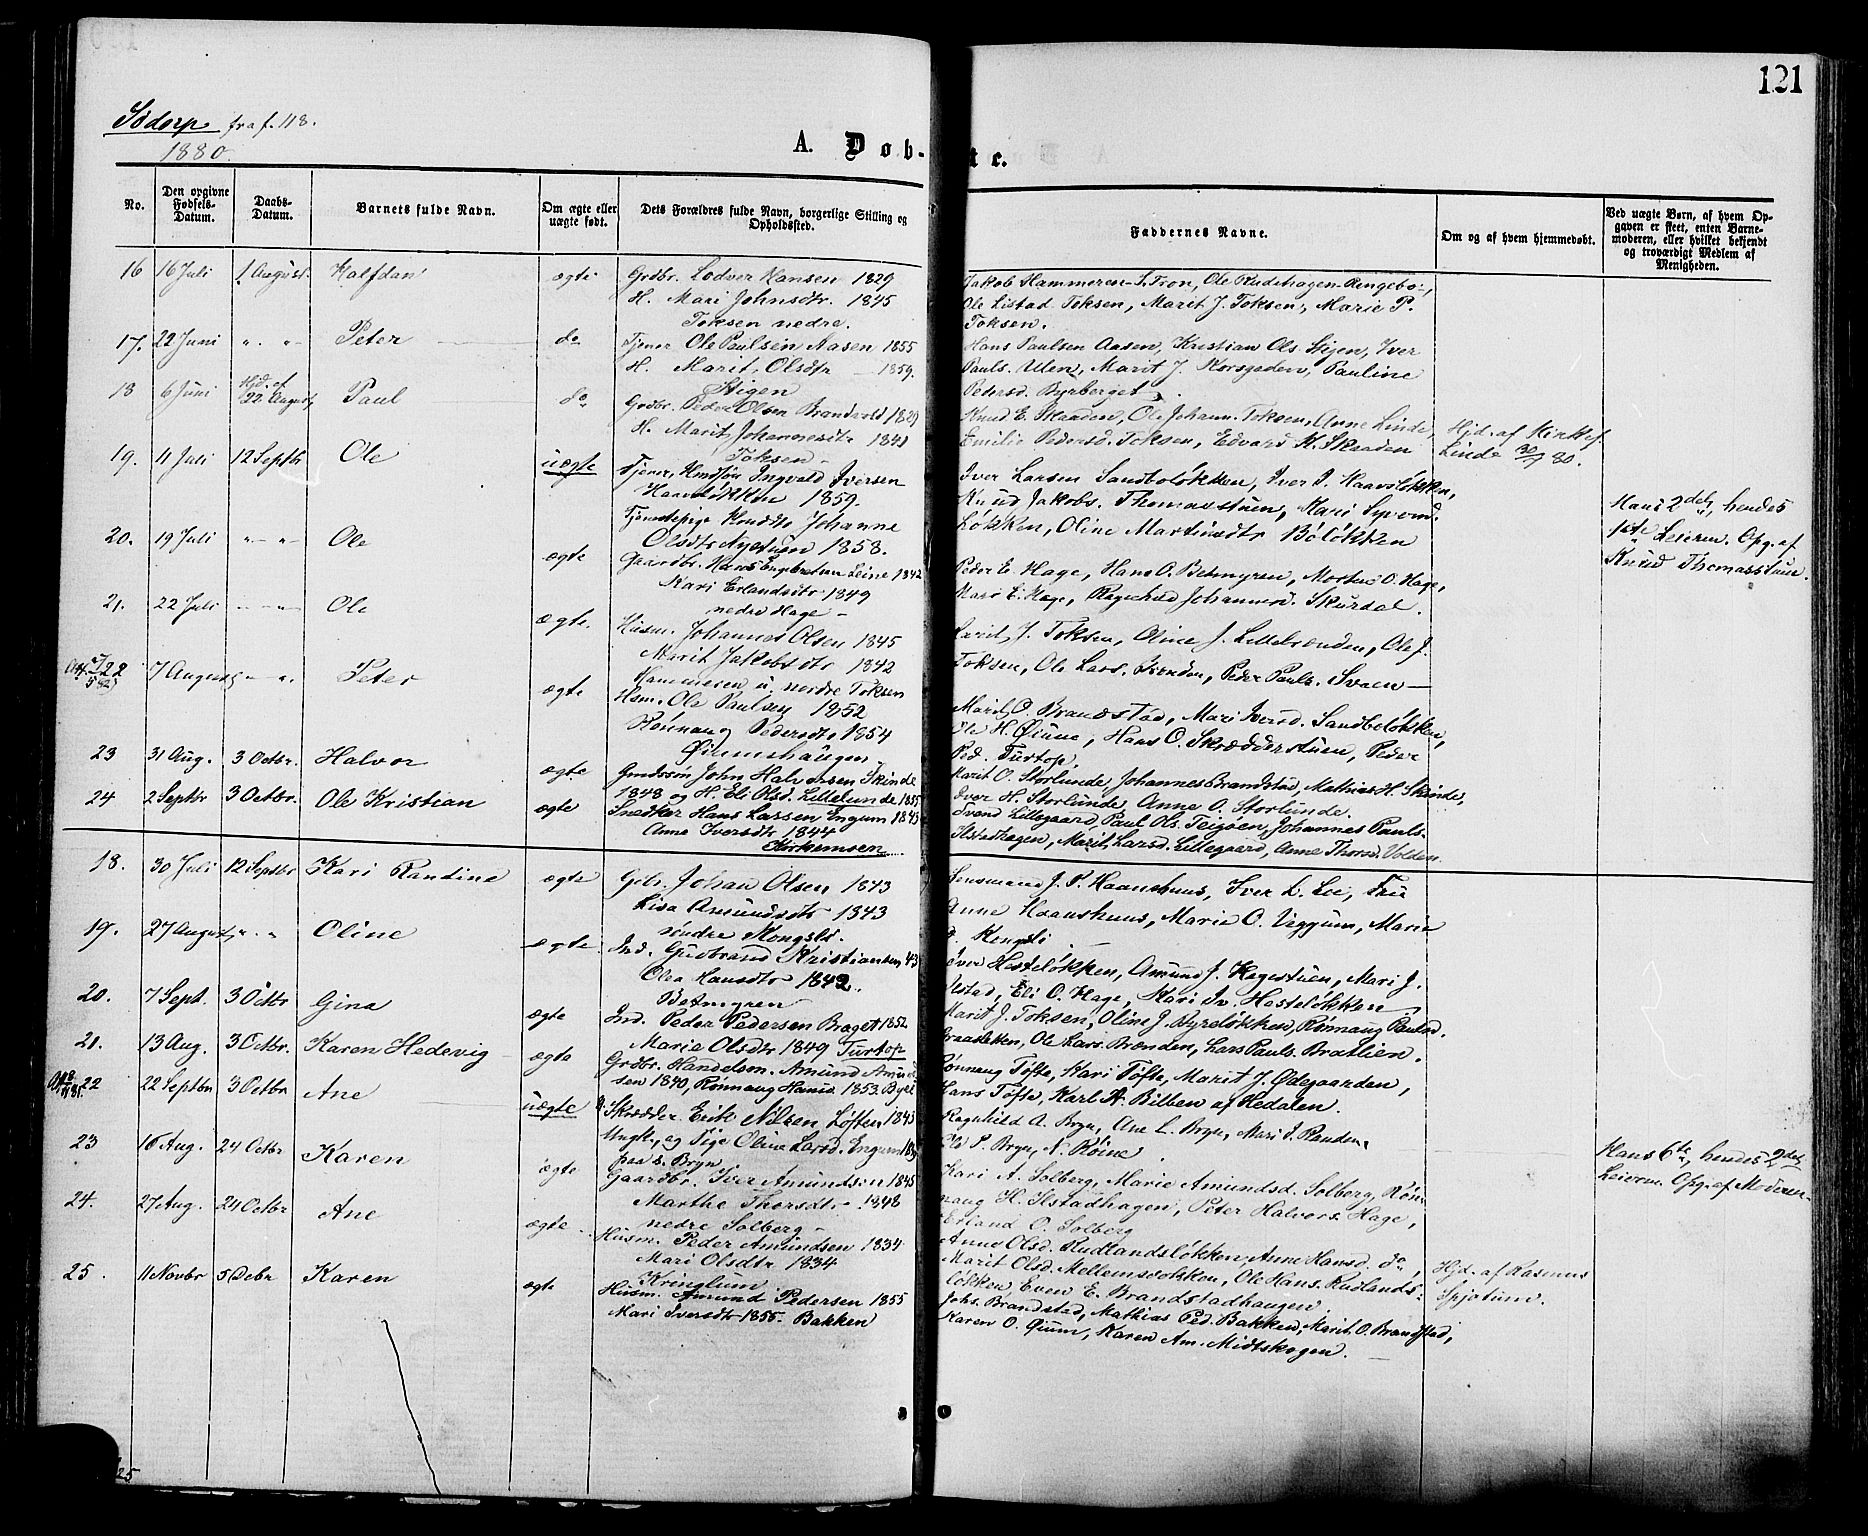 121
Sødorp fra f. 118.
1880.
A. Døb-
te.
No.
Den opgivne Fødsels-Datum.
Daabs-Datum.
Barnets fulde Navn.
Om ægte eller uægte født.
Dets Forældres fulde Navn, borgerlige Stilling og Opholdssted.
Faddernes Navne.
Om og af hvem hjemmedøbt.
Ved uægte Børn, af hvem Opgaven er skeet, enten Barnemoderen, eller hvilket bekjendt og troværdigt Medlem af Menigheden.
16 16 Juli 1 August Halfdan ægte Grdbr. Lodver Hansen 1829
H. Mari Johnsdtr. 1845
Toksen nedre.
Jakob Hammeren-S. Fron, Ole Rudihagen-Ringebo,
Ole Listad Toksen, Marit J. Toksen, Marie P.
Toksen.
17. 22 Juni " " Peter do Tjener Ole Paulsen Aasen 1855
H. Marit Olsdtr 1859.
Stigen
Hans Paulsen Aasen, Kristian Ols. Stigen, Iver
Pauls. Ulen, Marit J. Korsgaden, Pauline
Pedersd. Byrberget.
18 6 Juni Hjd. af 22 August Paul do Grdbr. Peder Olsen Brandvold 1829
H. Marit Johannesdtr 1841
Toksen
Knud E. Skaaden, Ole Johann. Toksen, Anne Linde,
Emilie Pedersd. Toksen, Edvard K. Skaaden
Hjd. af Kirktj.
Linde 80.
19. 11 Juli 12 Septbr Ole uægte Tjener, Ingvald Iversen
Haaveløkken 1859.
Tjenestepige Johanne
Olsdtr Nystuen 1858.
Iver Larsen Sandboløkken, Iver I. Haavsløkken,
Knud Jakobs. Thomasstuen, Mari Syvend.
Løkken, Oline Martinsdtr Böløkken
Hans 2det, hendes
1ste Leierm. Opg. af
Knud Thomasstuen.
20. 19 Juli " " Ole ægte Gaardbr. Hans Engebretsen Leine 1842
Kari Erlandsdtr 1849
nedre Hage
Peder E. Hage, Hans O. Betnyren, Morten O. Hage,
Mari E. Hage, Ragnhild Johannesd. Skurdal.
21. 22 Juli " " Ole ægte Husm. Johannes Olsen 1845
Marit Jakobsdtr 1842
Hammeren u. nordre Toksen
Marit J. Toksen, Oline J. Lillebrænden, Ole J.
Toksen, Ole Lars. Brænden, Peder Pauls. Sveen
22 7 August " " Peter ægte Hsm. Ole Paulsen 1852
Rønnaug Pedersdtr 1854
Øiumshaugen
Marit O. Brandstad, Mari Iversd. Sandboløkken,
Ole H. Øiume, Hans O. Skrædderstuen, Peder
Ped. Turtop.
23 31 Aug. 3 Octbr. Halvor ægte Gmdssn John Halvorsen Skinde
1848 og H. Eli Olsd. Lillelunde 1855
Marit O. Storlunde, Johannes Brandstad, Mathias H. Skinde,
Iver H. Storlunde, Anne O. Storlunde.
24 2 Septbr 3 Octbr. Ole Kristian ægte Snedker Hans Larsen Engum 1845
Anne Iversdtr 1844
Kirkemoen
Trond Lillegaard, Paul Ols. Teigøen, Johannes Pauls.
Ilstadhagen, Marit Larsd. Lillegaard, Anne Thorsd. Volden
18. 30 Juli 12 Septbr Kari Randine ægte Gbr. Johan Olsen 1843
Lisa Amundsdtr 1843
søndre Kongsli.
Lensmand J. P. Haanshuus, Iver L. Loe, Fru
Anne Haanshuus, Marie O. Viggum, Marie
Kongsli
19. 27 August " " Oline ægte Ind. Gudbrand Kristiansen 43
Olea Hansdtr 1842
Betmyren
Iver Hesteløkken, Amund J. Hagestuen, Mari J.
Ilstad, Eli O. Hage, Kari Iv. Hesteløkken
20. 7 Sept. 3 Octbr Gina ægte Ind. Peder Pedersen Braget 1852
Marie Olsdtr 1849 Turtop
Marit J. Toksen, Oline J. Byreløkken, Rønnaug Paulsd.
Braatletten, Ole Lars. Brænden, Lars Pauls. Bratlien.
21. 13 Aug. 3 Octbr. Karen Hedevig ægte Grdbr. Handelsm. Amund Amundsen 1840, Rønnaug Hansd. 1853.
Rønnaug Tøfte, Kari Tøfte, Marit J. Ødegaarden,
Hans Tøfte, Karl A. Bilben af Hedalen.
22 22 Septbr 3 Octbr Ane uægte Skrædder Erik Nilsen Løften 1843
Ungk. og Pige Oline Larsd. Engum
paa s. Bryn
Ragnhild A. Bryn, Ane L. Bryn, Mari I. Randen
Ole P. Bryn, N. Røine.
Hans 6te, hendes 2det
Leierm. Opg. af Moderen
23 16 Aug. 24 Octbr Karen ægte Gaardbr. Iver Amundsen 1845
Marthe Thorsdtr 1848
nedre Solberg
Kari A. Solberg, Marie Amundsd. Solberg, Røn-
naug H. Ilstadhagen, Peter Halvors. Hage,
Erland O. Solberg
24. 27 Aug. 24 Octbr Ane ægte Husm. Peder Amundsen 1834
Mari Olsdtr 1834
Kringlum
Anne Olsd. Rudlandsløkken, Anne Hansd. do,
Marit Olsd. Mellemsvekken, Ole Hans. Rudlands-
løkken, Even E. Brandstadhaugen.
25. 11 Novbr 5 Debr Karen ægte Husm. Amund Pedersen 1855
Mari Iversdtr 1855 Bakken
Johs. Brandstad, Mathias Ped. Bakken, Marit O. Brandstad,
Karen O. Øium, Karen Am. Midtskogen.
Hjd. af Rasmus
Spjotum.